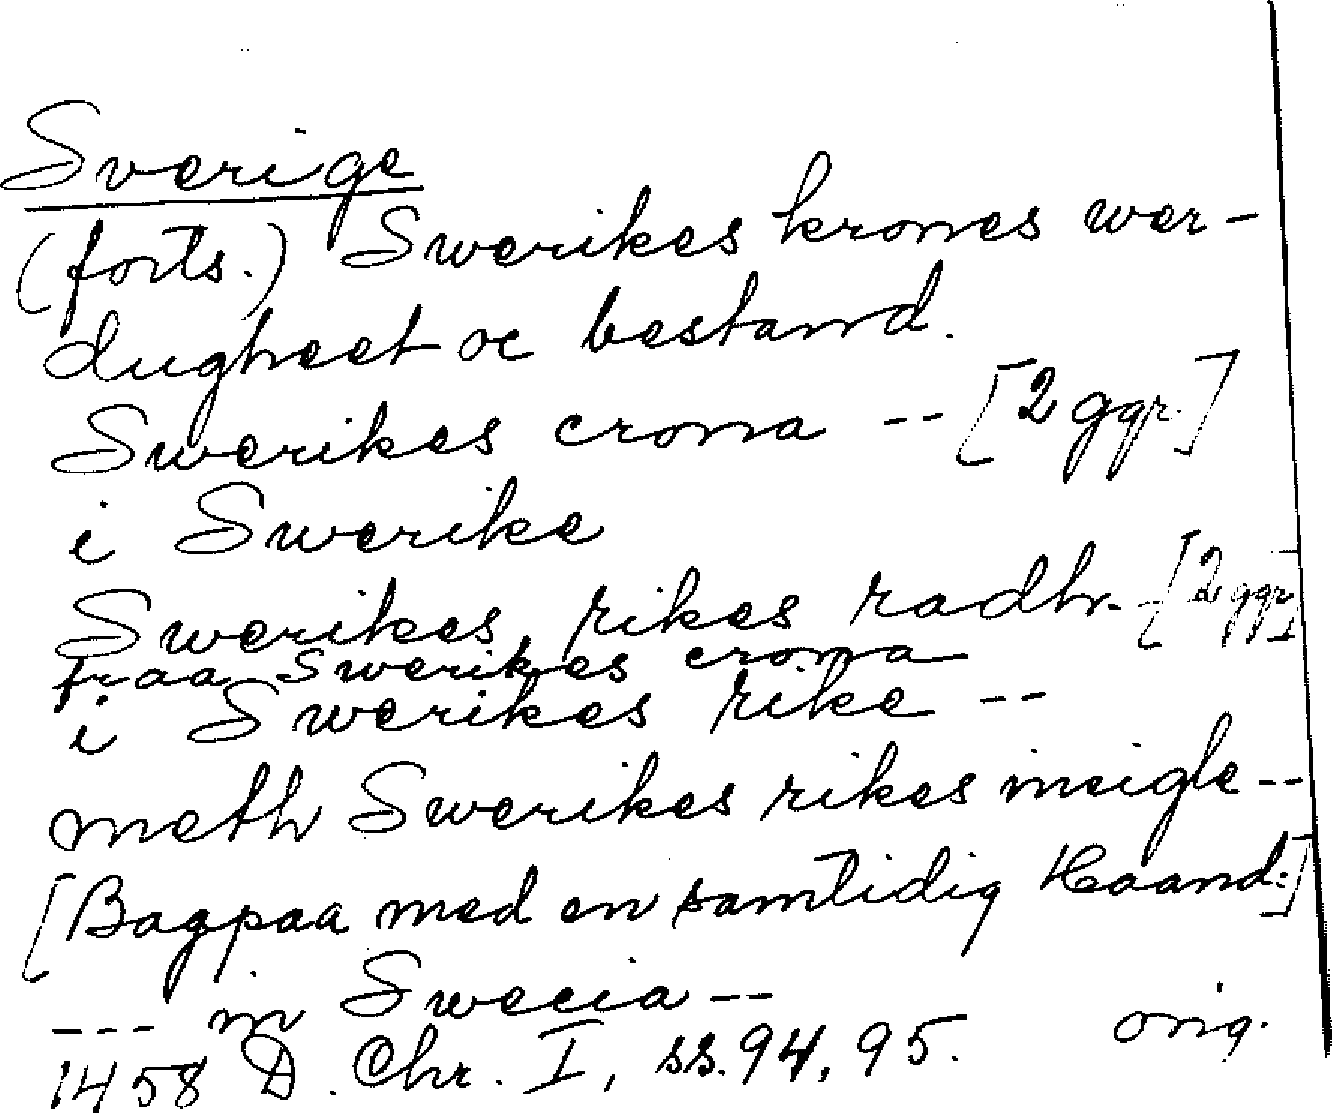 Sverige
(forts.) Swerikes krones wer-
dugheet oc bestand.
Swerikes crona -- [2 ggr.]
i Swerike
Swerikes rikes radh. -[2 ggr]
fraa Swerikes crona
i Swerikes rike --
meth Swerikes rikes ineigle --
[Bagpaa med en samtidig Haand:]
--- in Swecia --
1458 D. Chr. I, ss. 94, 95. orig.